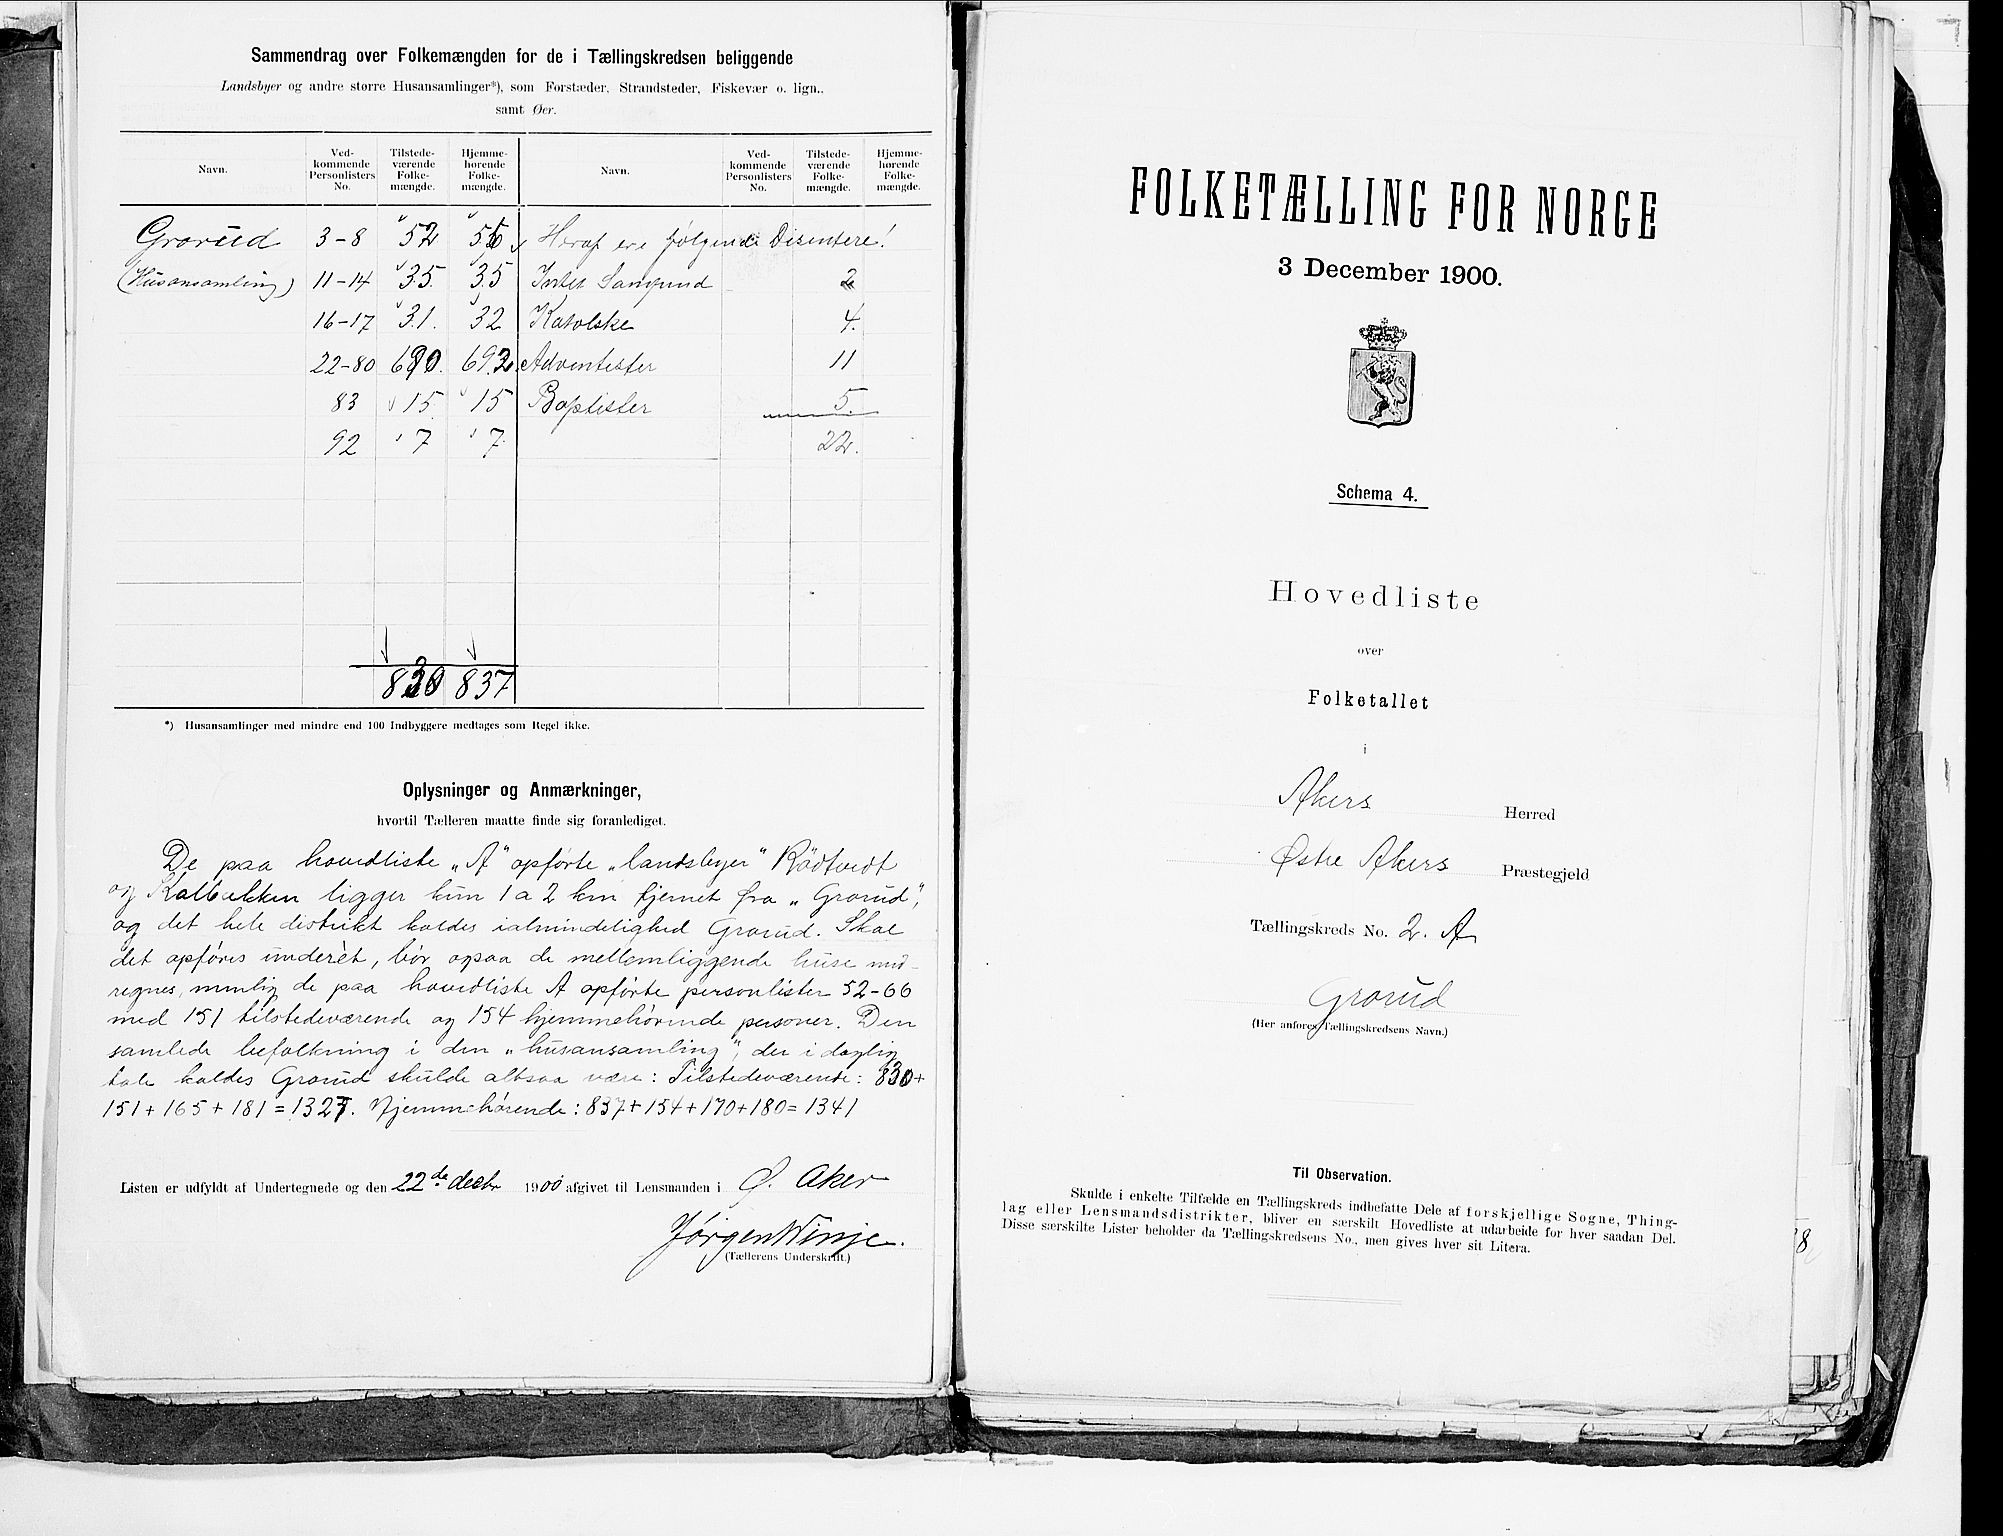 Sammendrag over Folkemængden for de i Tællingskredsen beliggende
Landsbyer og andre større Husansamlinger*), som Forstæder, Strandsteder, Fiskevær o. lign.,
samt Øer.
Navn. Ved-kommende Personlisters No. Tilstede-værende Folke-mængde. Hjemme-hørende Folke-mængde. Navn. Ved-kommende Personlisters No. Tilstede-værende Folke-mængde. Hjemme-hørende Folke-mængde.
Grorud 3-8 52 56 Heraf ere følgende Disentere!
(Husansamling) 11-14 35. 35 2
16-17 31. 32 Katolske 4.
22-80 690. 692 Adventister 11
83 15 15 Baptister 5.
92 7 7 22.
830 837
*) Husansamlinger med mindre end 100 Indbyggere medtages som Regel ikke.
Oplysninger og Anmærkninger,
hvortil Tælleren maatte finde sig foranlediget.
De paa hovedliste „A" opførte „landsbyer" Rödtvedt
og Kalbakken ligger kun 1 a 2 km fjernet fra „Grorud",
og det hele distrikt kaldes ialmindelighed Grorud. Skal
det opføres underèt, bör ogsaa de mellemliggende huse med-
regnes, nemlig de paa hovedliste A opførte personlister 52-66
med 151 tilstedeværende og 154 hjemmehørende personer. Den
samlede befolkning i den „husansamling", der i daglig
tale kaldes Grorud skulde altsaa være: Tilstedeværende: 830+
151+165+181=1327. Hjemmehørende: 837+154+170+180=1341
Listen er udfyldt af Undertegnede og den 22de decbr 1900 afgivet til Lensmanden i Ø. Aker
Jørgen Winje.
(Tællerens Underskrift.)
FOLKETÆLLING FOR NORGE
3 December 1900.
Schema 4.
Hovedliste
over
Folketallet
i
Akers Herred
Østre Akers Præstegjeld
Tællingskreds No. 2. A
Grorud
(Her anføres Tællingskredsens Navn.)
Til Observation.
Skulde i enkelte Tilfælde en Tællingskreds indbefatte Dele af forskjellige Sogne, Thing-
lag eller Lensmandsdistrikter, bliver en særskilt Hovedliste at udarbeide for hver saadan Del.
Disse særskilte Lister beholder da Tællingskredsens No., men gives hver sit Litera.